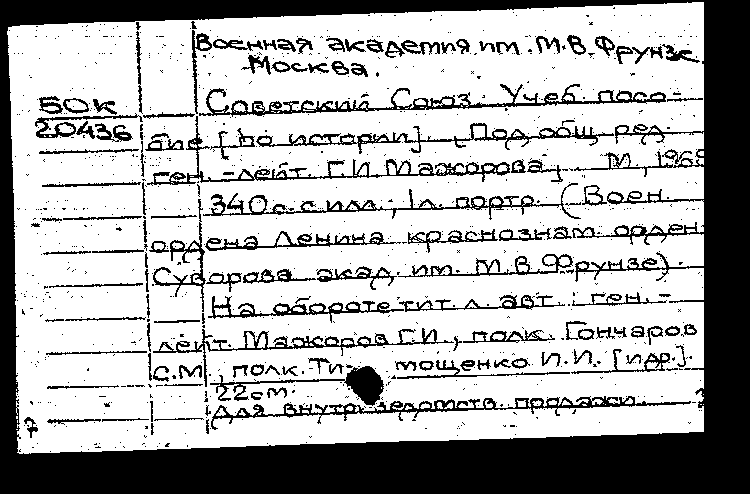 Военная академия им. М.В.Фрунзе.
Москва.
БОК
20436
Советский Союз. Учеб. посо-
бие [по истории]. Под общ. ред.
ген.-лейт. Г.И. Мажорова, М., 196
340 с. с илл.; 1л. портр. (Воен.
ордена Ленина краснознам. орден
Суворова акад. им. М.В.Фрунзе).
На обороте тит. л. авт.: ген.-
лейт. Мажоров Г.И., полк. Гончаров
С.М., полк. Тимошенко И.И. [и др.].
22 см.
Для внутриведомств. продажи.